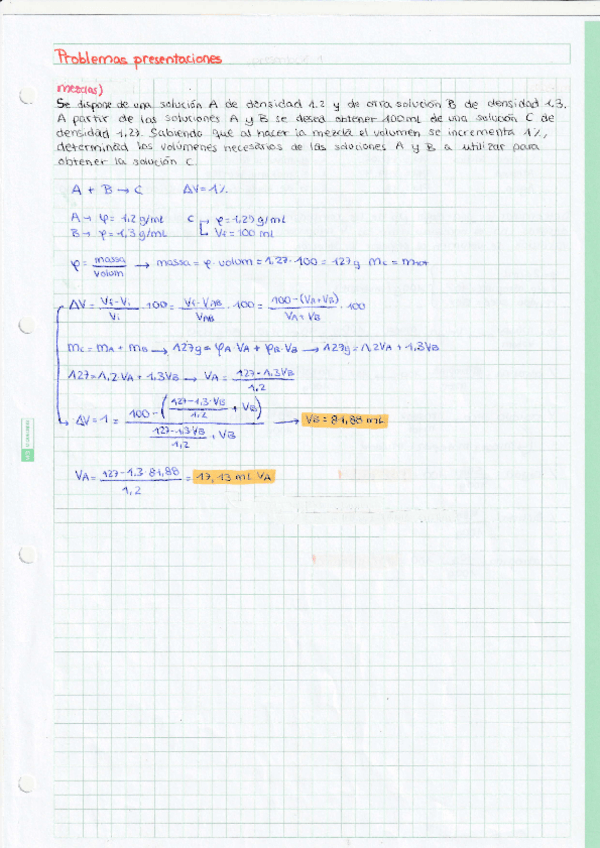 Problemas presentaciones
mezclas)
Se dispone de una solución A de densidad 1.2 y de otra solución B de densidad 1.3.
A partir de las soluciones A y B se desea obtener 100mL de una solución C de
densidad 1,27. Sabiendo que al hacer la mezcla el volumen se incrementa 1%,
determinad los volúmenes necesarios de las soluciones A y B a utilizar para
obtener la solución C.
A + B → C ΔV = 1%
A → φ = 1,2 g/mL C → φ = 1,27 g/mL
B → φ = 1,3 g/mL Vf = 100 mL
φ = massa / volum → massa = φ · volum = 1,27 · 100 = 127g mc = mtot
ΔV = (Vf - Vi) / Vi · 100 = (Vf - VAB) / VAB · 100 = (100 - (VA + VB)) / (VA + VB) · 100
mc = mA + mB → 127g = φA · VA + φB · VB → 127g = 1,2VA + 1,3VB
127 = 1,2 · VA + 1,3VB → VA = (127 - 1,3VB) / 1,2
ΔV = 1 = (100 - ((127 - 1,3 · VB) / 1,2 + VB)) / ((127 - 1,3VB) / 1,2 + VB) → VB = 81,88 mL
VA = (127 - 1.3 · 81,88) / 1,2 = 17,13 mL VA